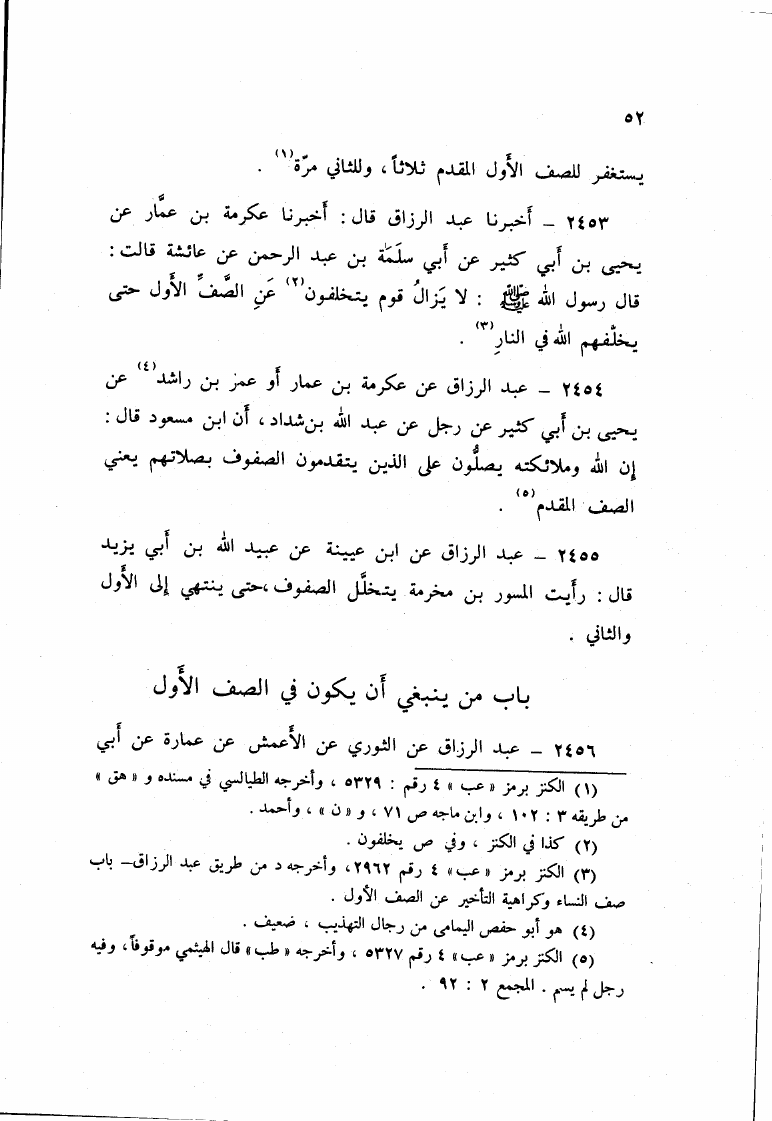 ٥٢
يستغفر للصف الأول المقدم ثلاثاً ، وللثاني مرّة(١) .
٢٤٥٣ – أخبرنا عبد الرزاق قال : أخبرنا عكرمة بن عمَّار عن
يحيى بن أبي كثير عن أبي سلَمَة بن عبد الرحمن عن عائشة قالت :
قال رسول الله ﷺ : لا يَزالُ قوم يتخلفون(٢) عَنِ الصَّفِّ الأول حتى
يخلّفهم الله في النارِ(٣) .
٢٤٥٤ – عبد الرزاق عن عكرمة بن عمار أو عمر بن راشد(٤) عن
يحيى بن أبي كثير عن رجل عن عبد الله بن شداد ، أن ابن مسعود قال :
إن الله وملائكته يصلُّون على الذين يتقدمون الصفوف بصلاتهم يعني
الصف المقدم(٥) .
٢٤٥٥ – عبد الرزاق عن ابن عيينة عن عبيد الله بن أبي يزيد
قال : رأيت المسور بن مخرمة يتخلَّل الصفوف ، حتى ينتهي إلى الأول
والثاني .
باب من ينبغي أن يكون في الصف الأول
٢٤٥٦ – عبد الرزاق عن الثوري عن الأعمش عن عمارة عن أبي
(١) الكنز برمز « عب » ٤ رقم : ٥٣٢٩ ، وأخرجه الطيالسي في مسنده و « هق »
من طريقه ٣ : ١٠٢ ، وابن ماجه ص ٧١ ، و « ن » ، وأحمد .
(٢) كذا في الكنز ، وفي ص يخلفون .
(٣) الكنز برمز « عب » ٤ رقم ٢٩٦٢ ، وأخرجه د من طريق عبد الرزاق – باب
صف النساء وكراهية التأخير عن الصف الأول .
(٤) هو أبو حفص اليمامى من رجال التهذيب ، ضعيف .
(٥) الكنز برمز « عب » ٤ رقم ٥٣٢٧ ، وأخرجه « طب » قال الهيثمي موقوفاً ، وفيه
رجل لم يسم . المجمع ٢ : ٩٢ .